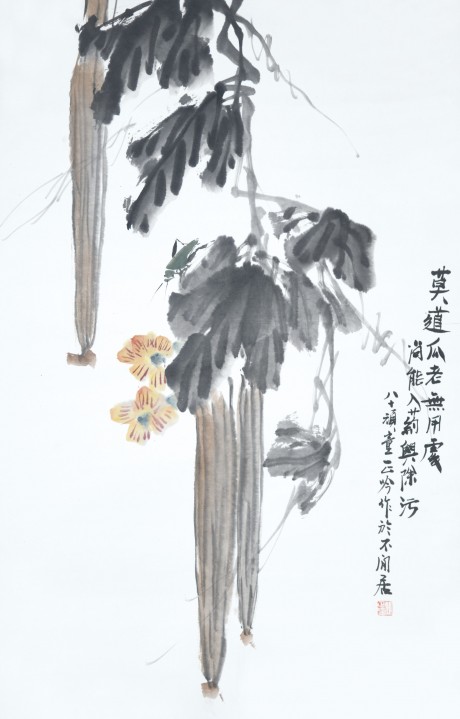 莫道瓜老無用處
尚能入葯與除污
八十頑童正吟作於不閒居